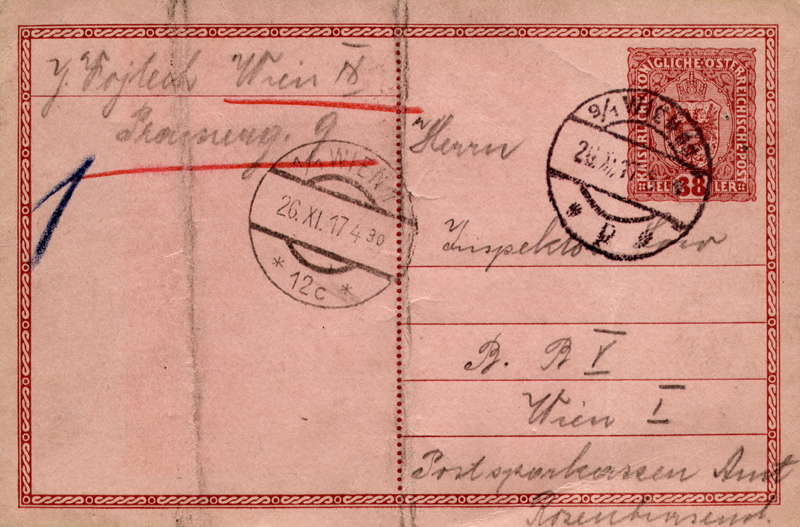 J. Vojtech Wien IX
Pramerg. 9
Herrn
Inspektor
B. B V
Wien I
Postsparkassen Amt
KAISERLICHE KÖNIGLICHE ÖSTERREICHISCHE POST
38
HELLER
9/1 WIEN
26.XI.17
1/1 WIEN 1
26.XI.17 4 30
* 12c *
1